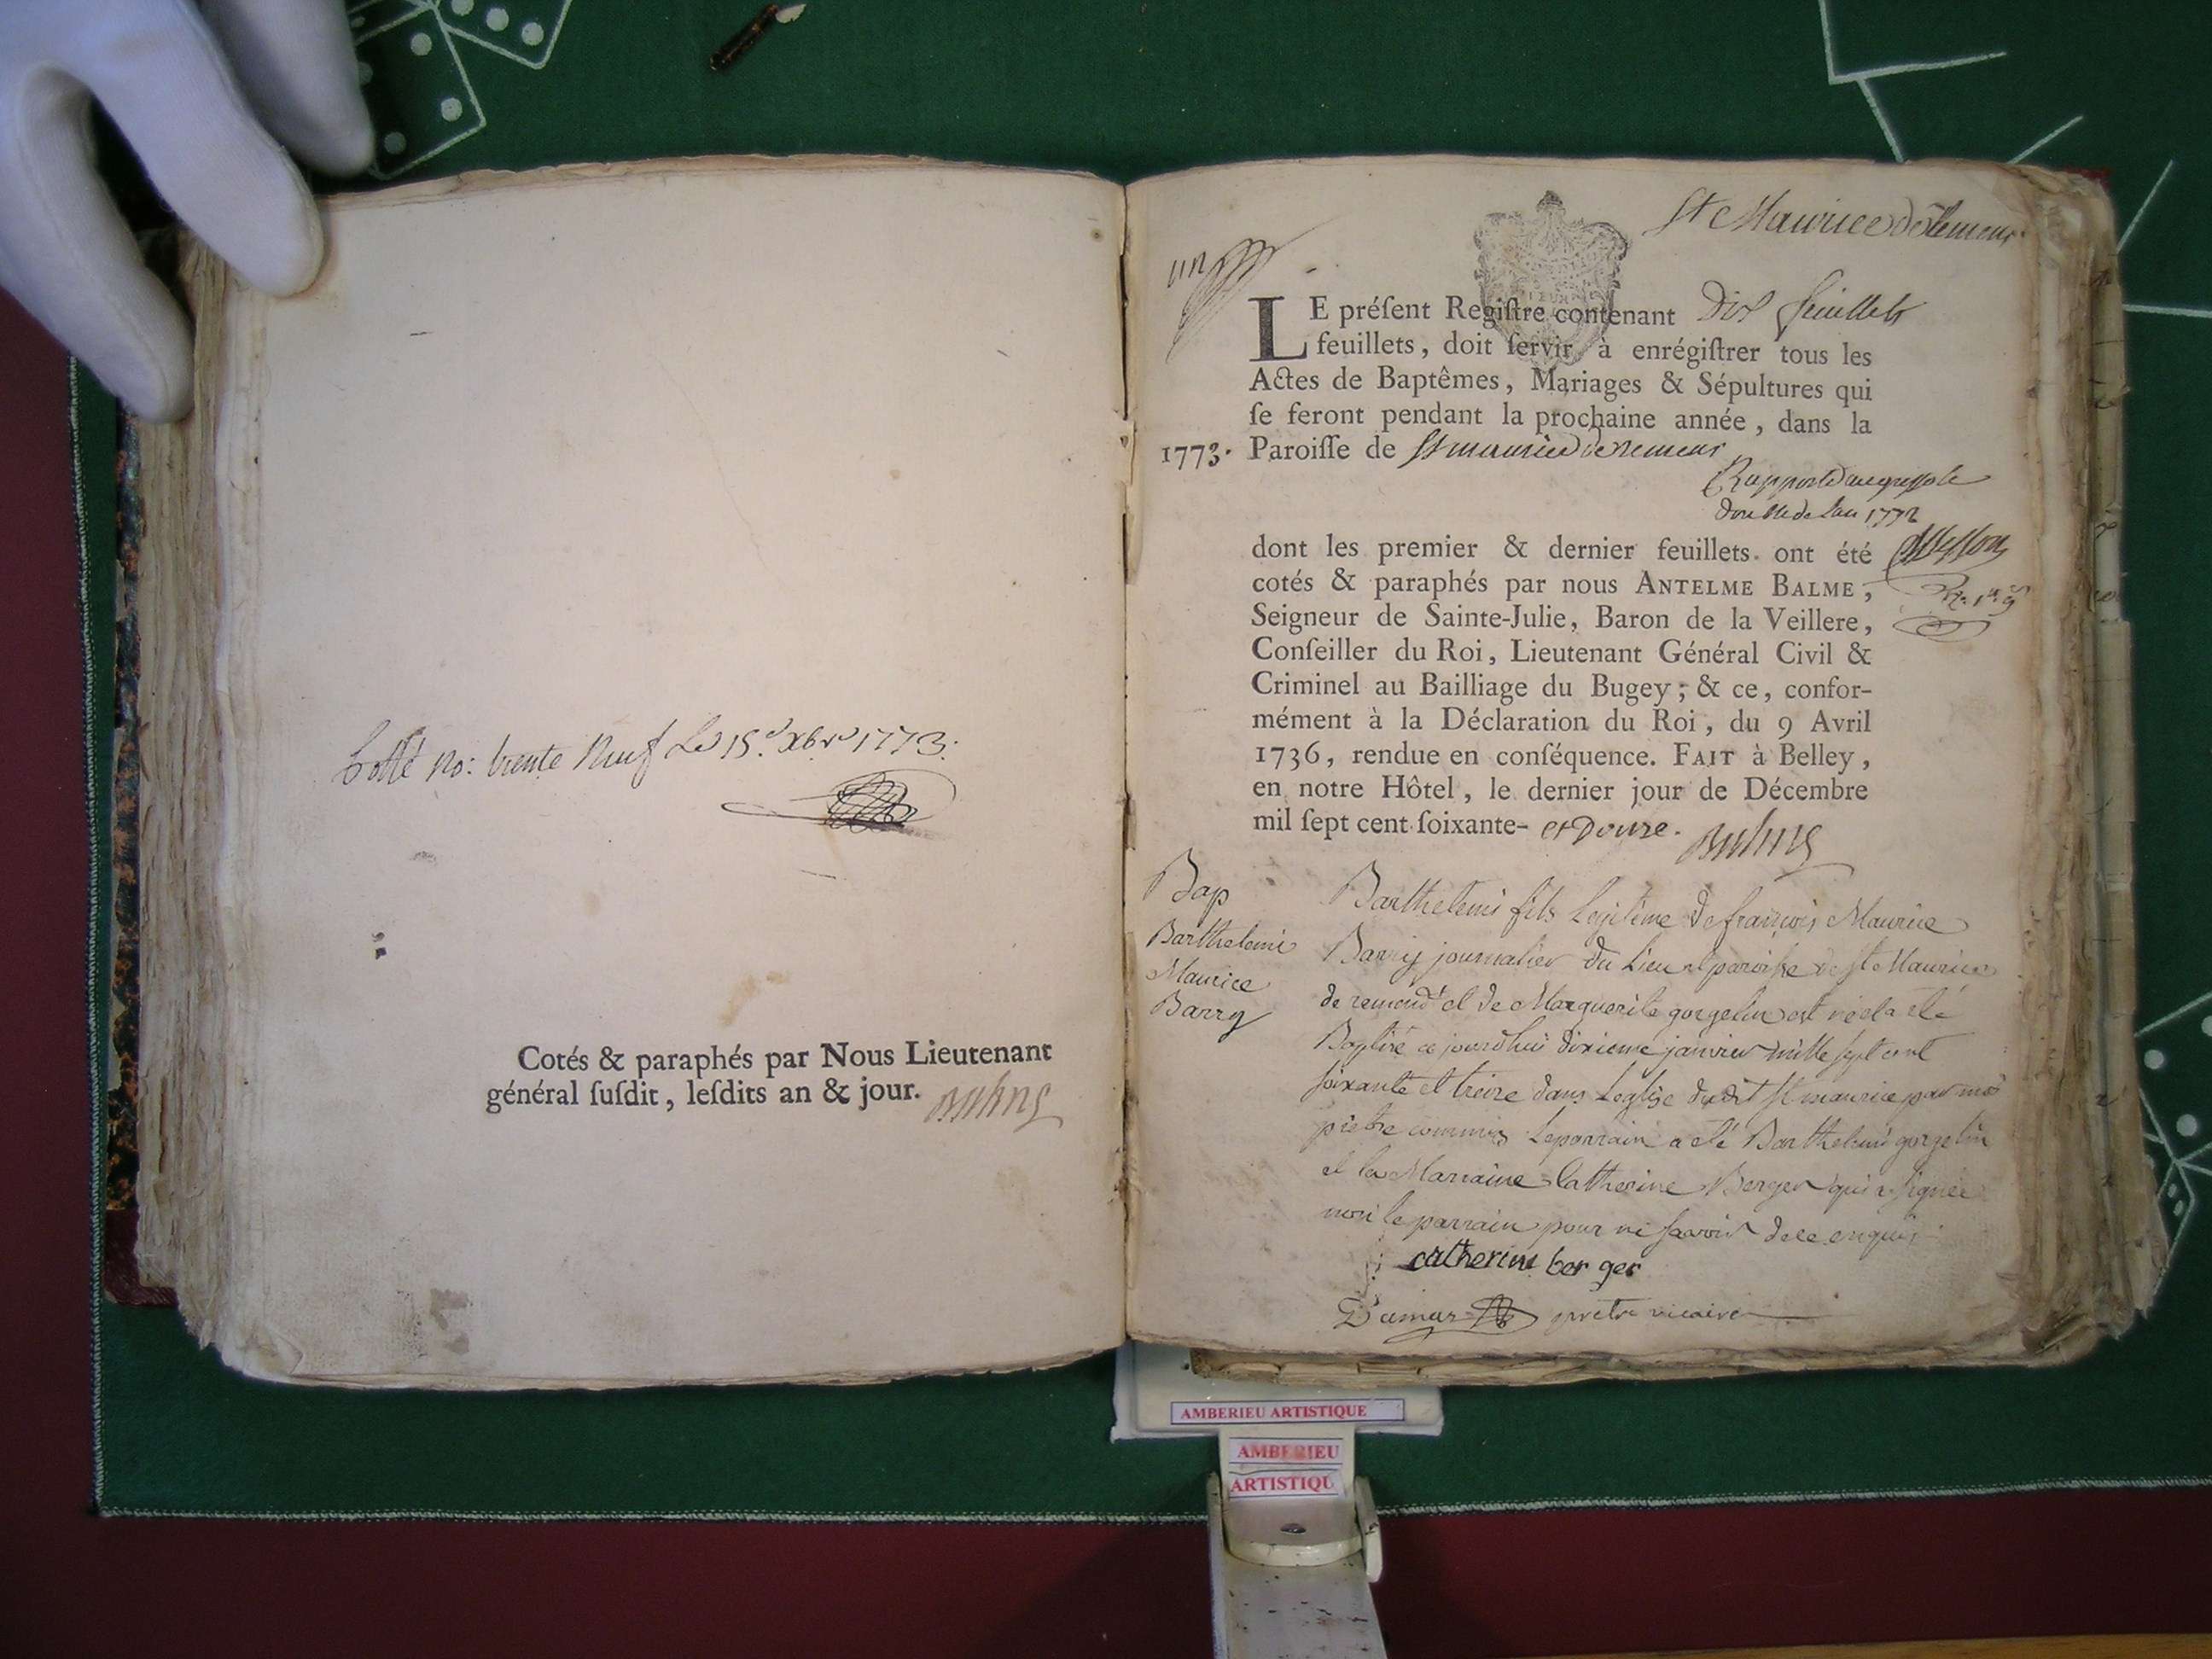 Cotté no: trente Neuf Le 15.e Xbre 1773.
Cotés & paraphés par Nous Lieutenant
général ſuſdit, leſdits an & jour.
un
St Maurice de Remens
LE préſent Regiſtre contenant Dix feuillets
feuillets, doit ſervir à enrégiſtrer tous les
Actes de Baptêmes, Mariages & Sépultures qui
ſe feront pendant la prochaine année, dans la
1773. Paroiſſe de St maurice de remens
Rapporté au greffe le
double de Lan 1772
dont les premier & dernier feuillets ont été
cotés & paraphés par nous ANTELME BALME,
Seigneur de Sainte-Julie, Baron de la Veillere,
Conſeiller du Roi, Lieutenant Général Civil &
Criminel au Bailliage du Bugey; & ce, confor-
mément à la Déclaration du Roi, du 9 Avril
1736, rendue en conſéquence. FAIT à Belley,
en notre Hôtel, le dernier jour de Décembre
mil ſept cent ſoixante- et Douze.
Bap
Barthelemi
Maurice
Barry
Barthelemi fils Legitime de françois Maurice
Barry journalier du Lieu et paroisse de St Maurice
de remend et de Marguerite gorgelin est né et a eté
Baptisé ce jourdhui dixieme janvier mille sept cent
soixante et treize dans Leglise dudit St maurice par moi
prêtre commis Leparrain a eté Barthelemi gorgelin
et la Marraine Catherine Berger qui a signée
non le parrain pour ne savoir de ce enquis
catherine berger
Dumas pretre vicaire
AMBERIEU ARTISTIQUE
AMBERIEU
ARTISTIQU